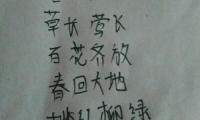 草长莺飞
百花齐放
春回大地
桃红柳绿